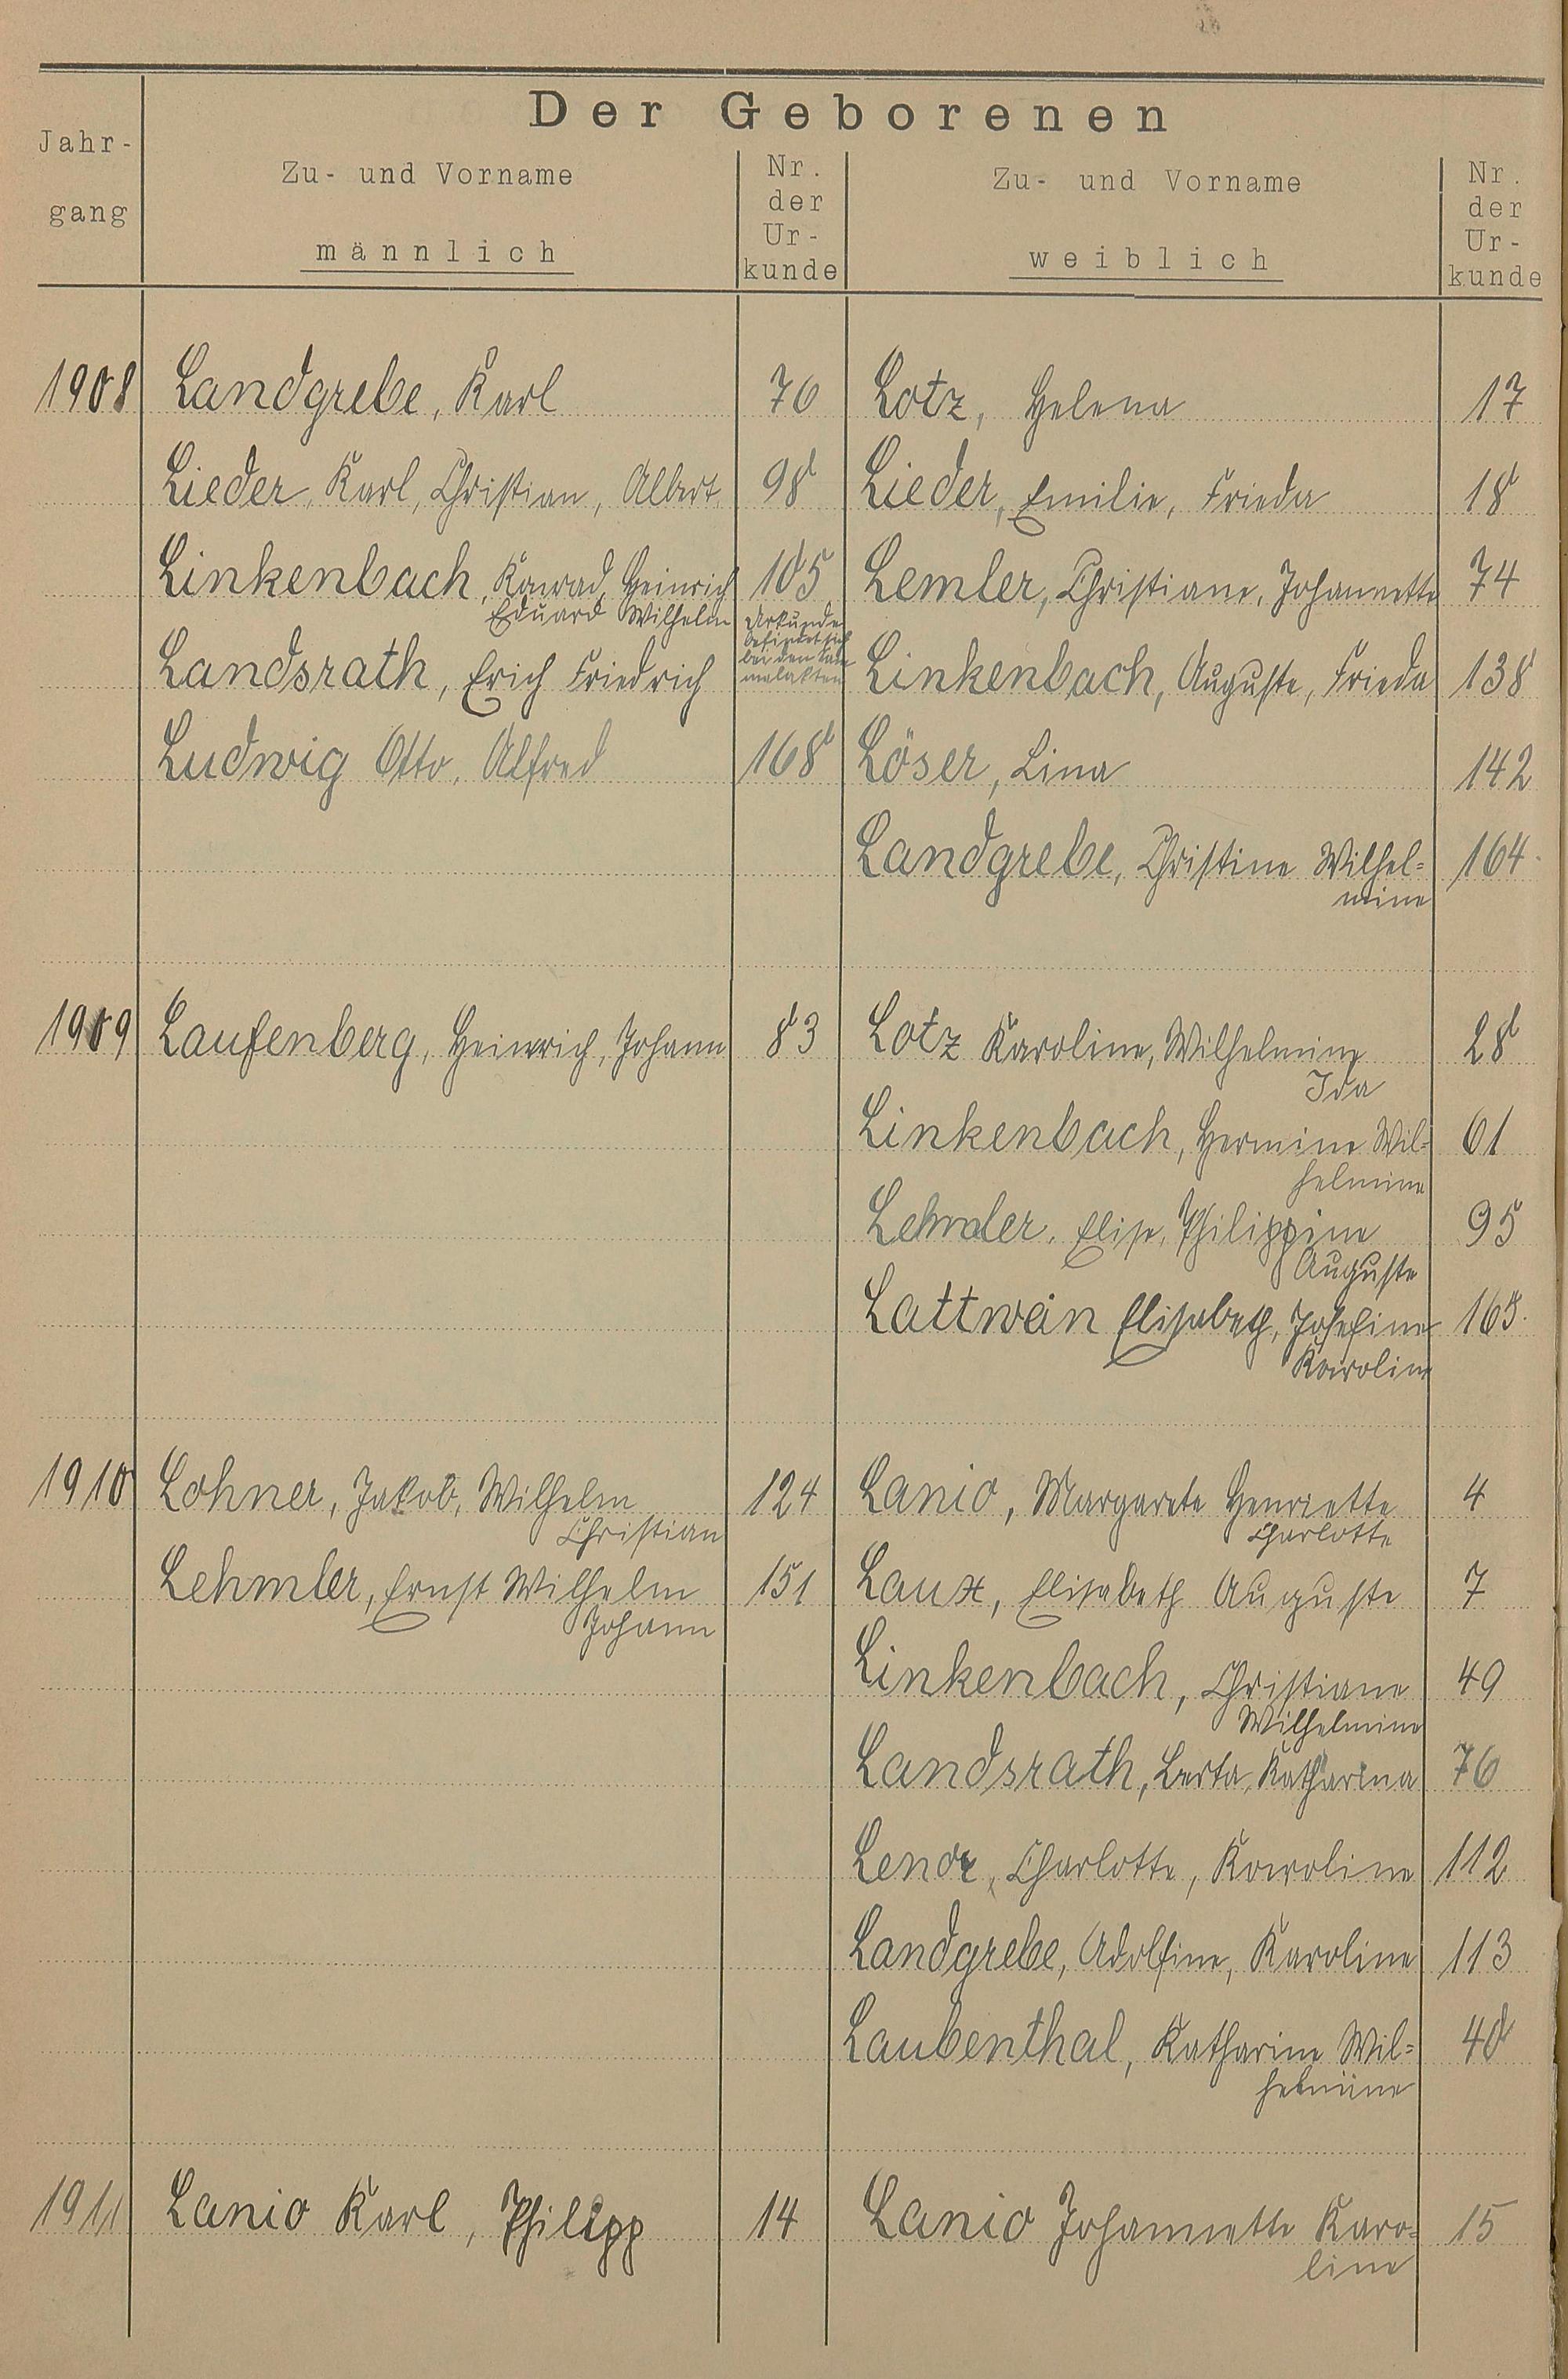 Der Geborenen
Jahr-
gang
Zu- und Vorname
männlich
Nr.
der
Ur-
kunde
Zu- und Vorname
weiblich
Nr.
der
Ur-
kunde
1908 Landgrebe, Karl 76 Lotz, Helena 17
Lieder, Karl, Christian, Albert 98 Lieder, Emilie, Frieda 18
Linkenbach, Konrad, Heinrich 105 Lemler, Christiane, Johannette 74
Eduard Wilhelm Urkunde
befindet sich
Landsrath, Erich Friedrich bei den Linkenbach, Auguste, Frieda 138
Ludwig Otto, Alfred 168 Löser, Lina 142
Landgrebe, Christine Wilhel= 164
mine
1909 Laufenberg, Heinrich, Johann 83 Lotz Karoline, Wilhelmine 28
Ida
Linkenbach, Hermine Wil= 61
helmine
Lehmler, Elise, Philippine 95
Auguste
Lattwein Elisabeth, Josefine
Karoline
1910 Lohner, Jakob, Wilhelm 124 Lanio, Margarete Henriette 4
Christian Charlotte
Lehmler, Ernst Wilhelm 151 Laux, Elisabeth Auguste 7
Johann
Linkenbach, Christiane 49
Wilhelmine
Landsrath, Berta, Katharina 76
Charlotte, Karoline 112
Landgrebe, Adolfine, Karoline 113
Laubenthal, Katharine Wil= 40
helmine
1911 Lanio Karl, Philipp 14 Lanio Johannette Karo= 15
line